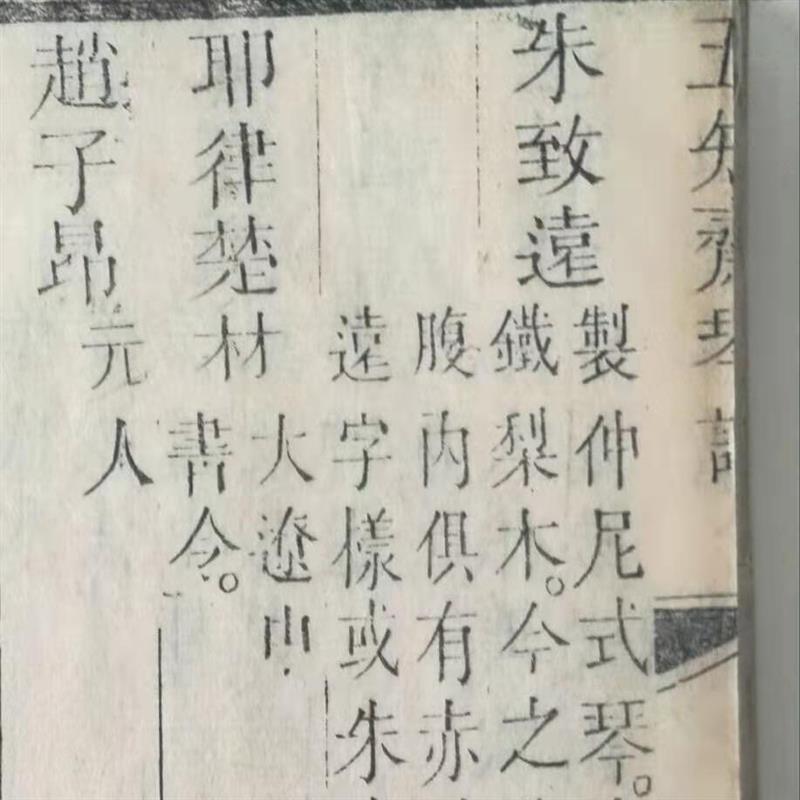 五知齋琴譜
朱致遠
製仲尼式琴。
鐵梨木。今之
腹内俱有赤
遠字樣或朱
耶律楚材
大遼中
書令。
趙子昂
元人